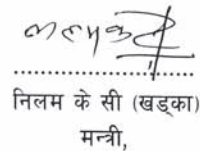 निलम के सी (खड्का)
मन्त्री,